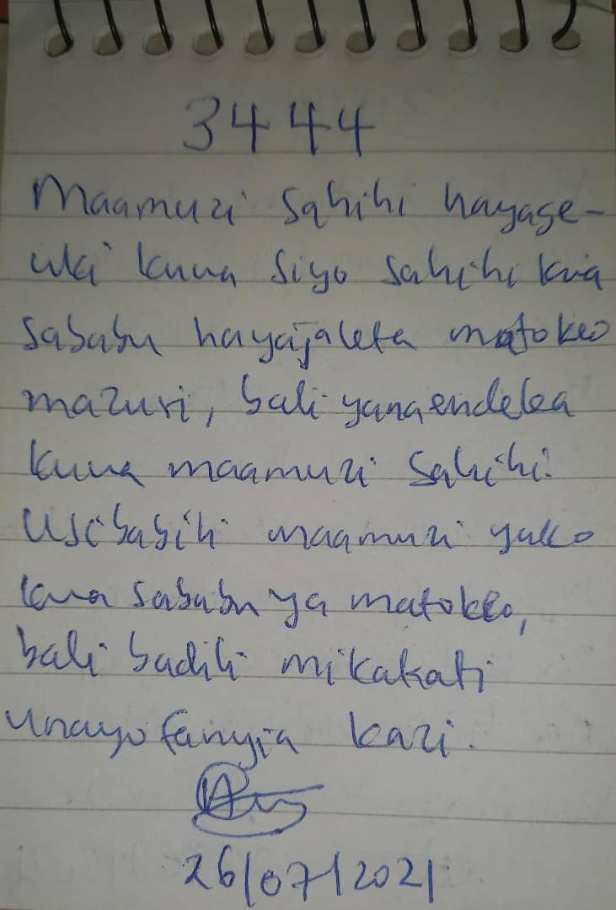 3444
Maamuzi sahihi hayage-
uki kuwa siyo sahihi kwa
sababu hayajaleta matokeo
mazuri, bali yanaendelea
kuwa maamuzi sahihi.
Usibabili maamuzi yako
kwa sababu ya matokeo,
bali badili mikakati
unayofanyia kazi.
26/07/2021